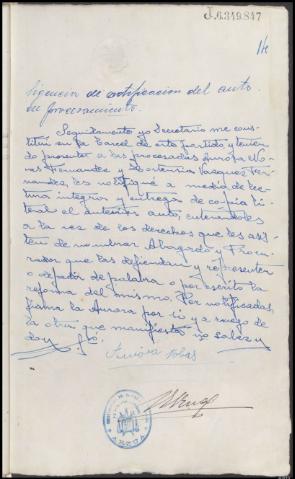 J.6349847
14
Diligencia de notificacion del auto
de procesamiento.
Seguidamente yo Secretario me cons-
titui en la Carcel de este partido y tenien-
do presente a las procesadas Aurora No-
vas Fernandez y Hortensia Vazquez Fer-
nandez, les notifiqué a medio de lec-
tura integra y entrega de copia li-
teral el anterior auto, enterandoles
a la vez de los derechos que les asis-
ten de nombrar Abogado y Procu-
rador que las defiendan y representen
o de pedir de palabra o por escrito la
reforma del mismo. Por notificadas,
firma la Aurora por si y a ruego de
la otra que manifiesta no saber y
doy fé.
Aurora Nobas
ARZUA